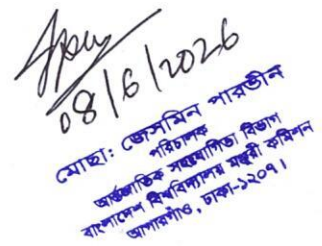 08/6/2026
মোছা: জেসমিন পারভীন
পরিচালক
আন্তর্জাতিক সহযোগিতা বিভাগ
বাংলাদেশ বিশ্ববিদ্যালয় মঞ্জুরী কমিশন
আগারগাঁও, ঢাকা-১২০৭।